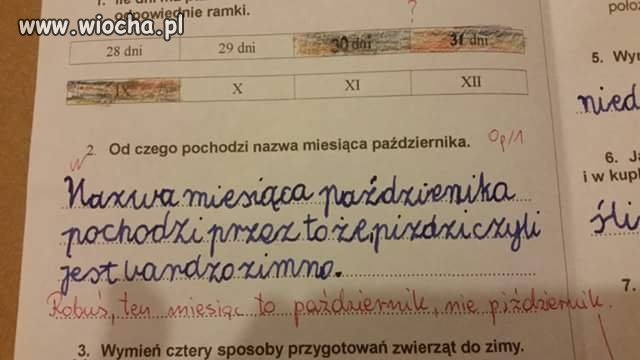 www.wiocha.pl
odpowiednie ramki.
?
28 dni 29 dni 30 dni 31 dni
IX X XI XII
2. Od czego pochodzi nazwa miesiąca października.
0p/1
Nazwa miesiąca paździenika
pochodzi przez to że, piździ czyli
jest vardzo zimno.
Robuś, ten miesiąc to październik, nie piździernik.
3. Wymień cztery sposoby przygotowań zwierząt do zimy.
położ
5. Wym
nied
6. Ja
i w kupk
śli
7.